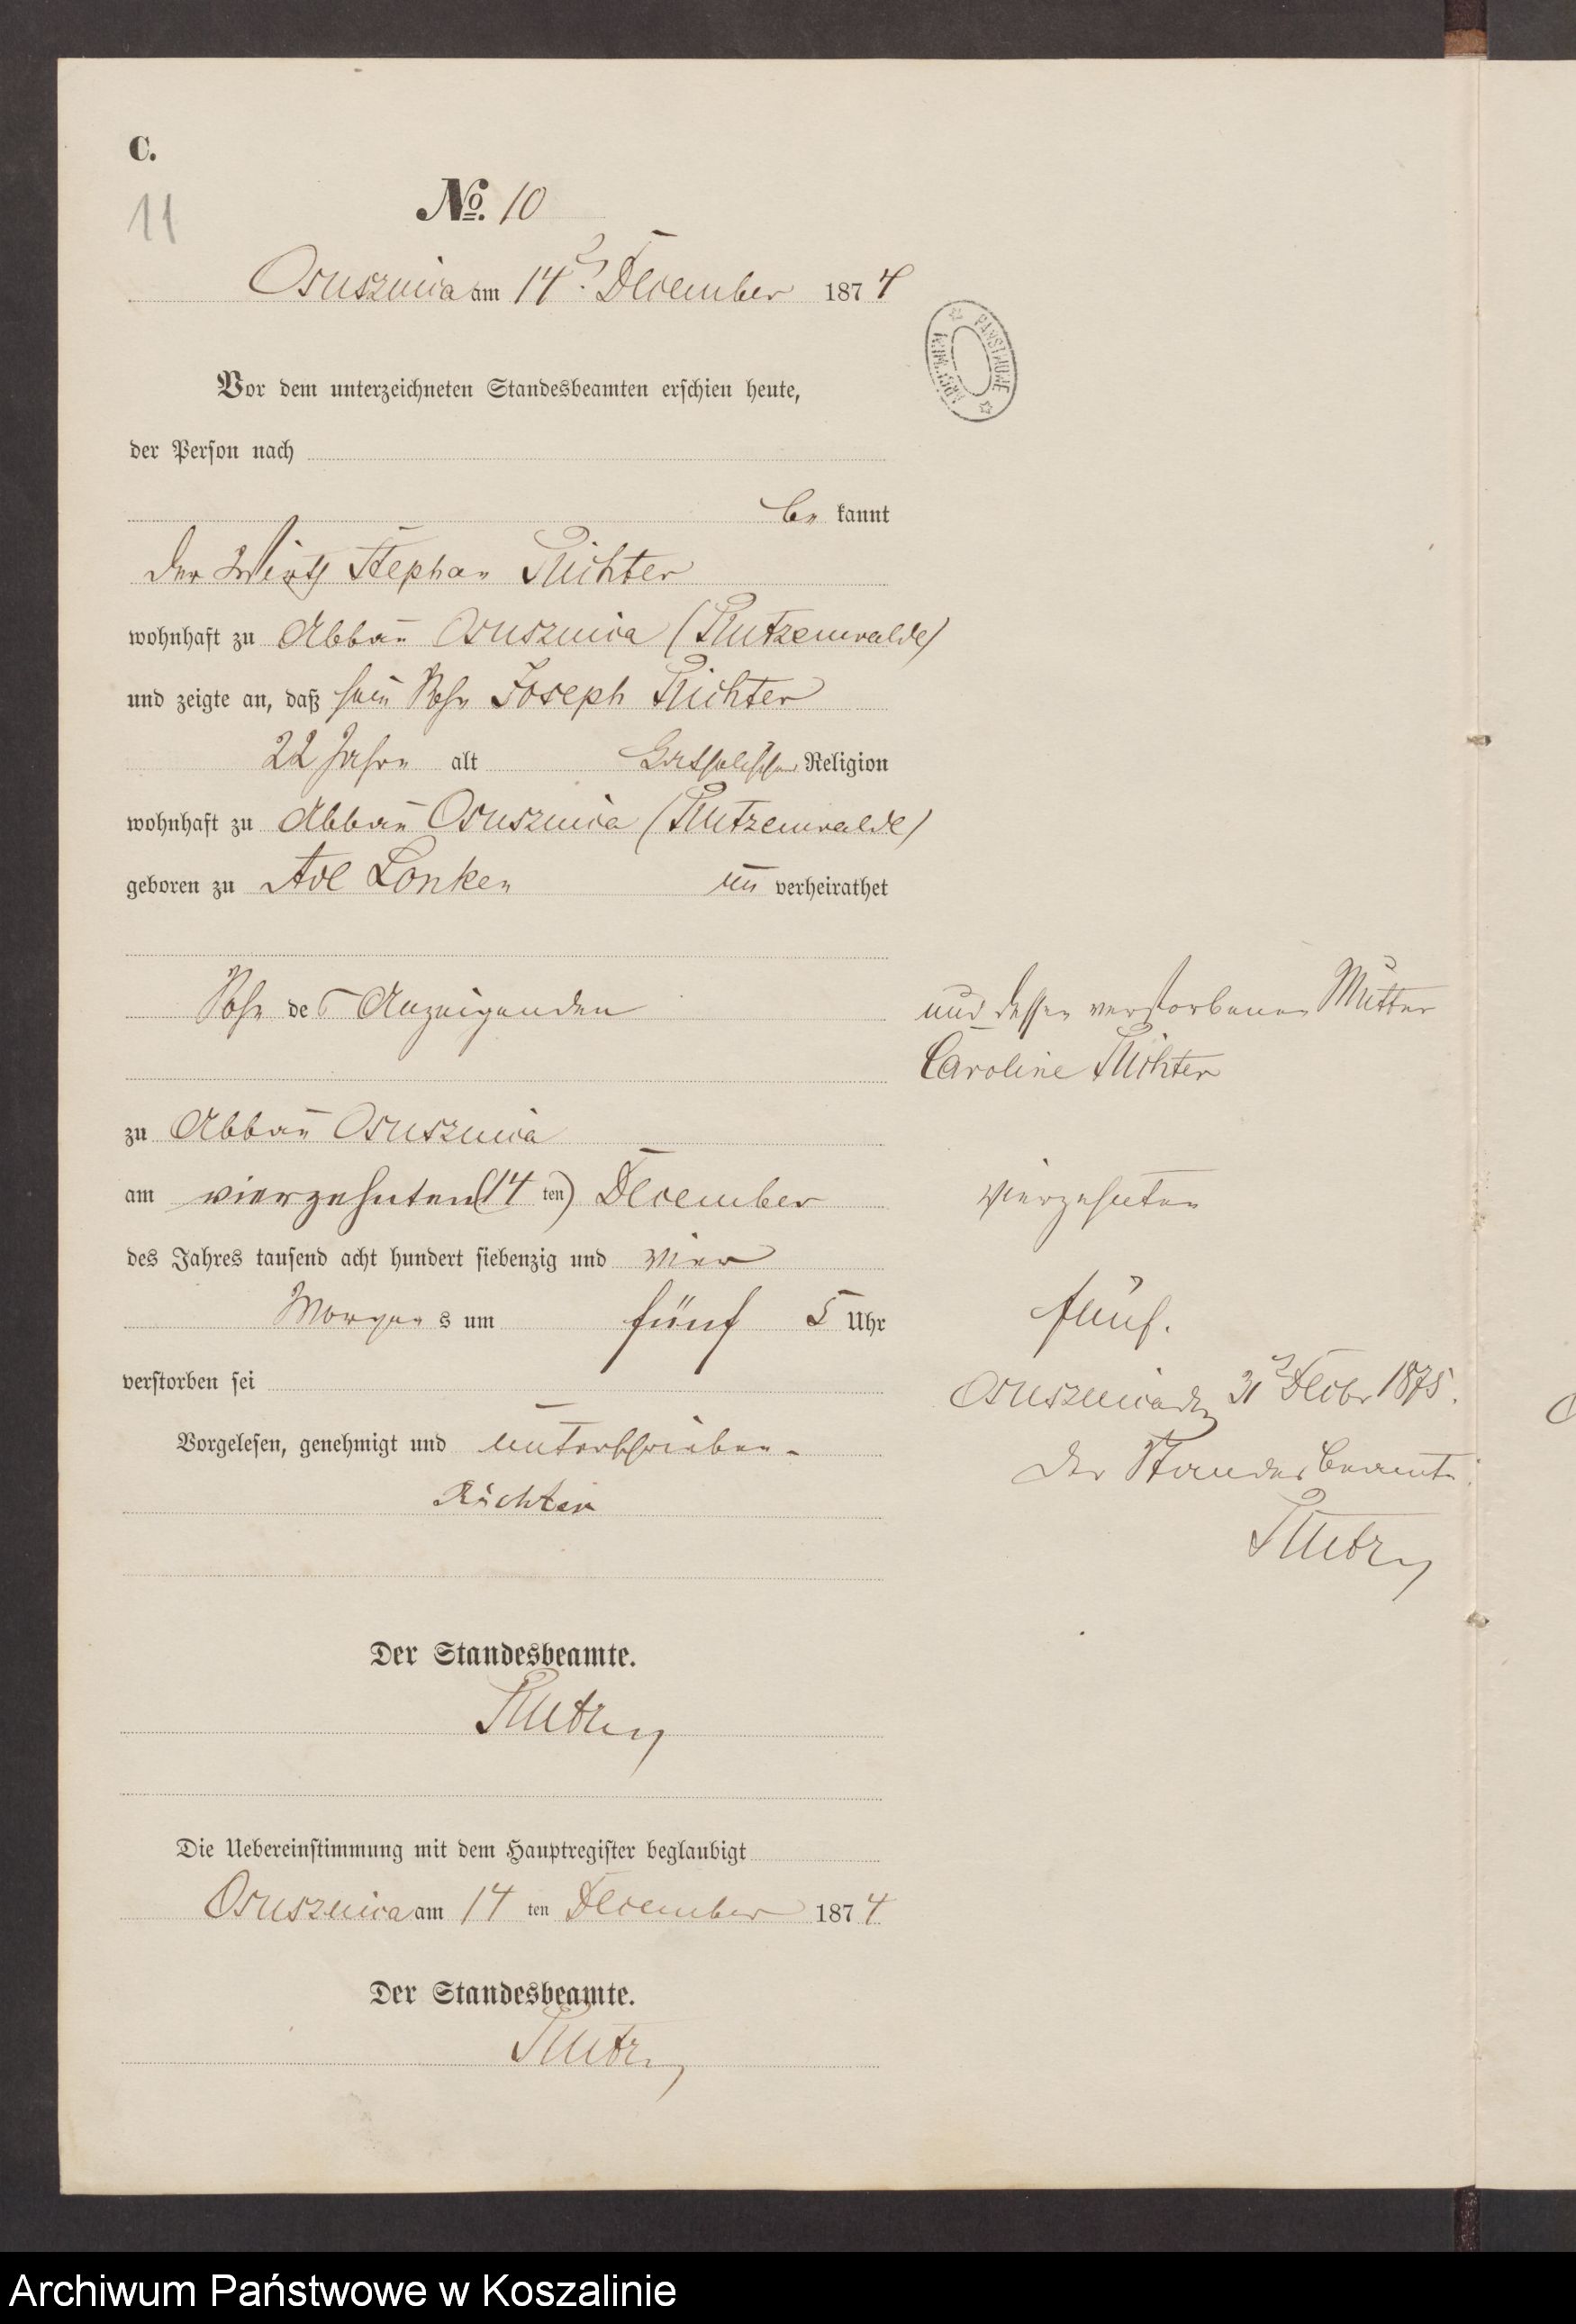 C.
11
No. 10
Osusznica am 14ten December 1874
PAŃSTWOWE
ARCHIWUM
Vor dem unterzeichneten Standesbeamten erschien heute,
der Person nach
be kannt
der Wirth Stephan Richter
wohnhaft zu Abbau Osusznica (Rutzenwalde)
und zeigte an, daß sein Sohn Joseph Richter
22 Jahre alt katholischer Religion
wohnhaft zu Abbau Osusznica (Rutzenwalde)
geboren zu Adl Lonken un verheirathet
Sohn des Anzeigenden
und dessen verstorbenen Mutter
Caroline Richter
zu Abbau Osusznica
am vierzehnten (14 ten) December
vierzehnten
des Jahres tausend acht hundert siebenzig und vier
Morgens um fünf 5 Uhr
fünf.
verstorben sei
Osusznica den 31ten Decbr 1875.
Vorgelesen, genehmigt und unterschrieben
Der Standesbeamte
Richter
Der Standesbeamte.
Die Uebereinstimmung mit dem Hauptregister beglaubigt
Osusznica am 14 ten December 1874
Der Standesbeamte.
Archiwum Państwowe w Koszalinie